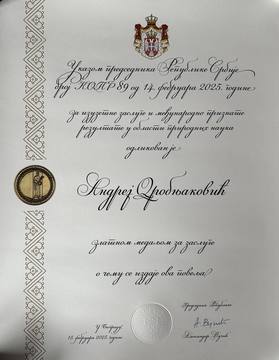 Указом председника Републике Србије
број КОПР 89 од 14. фебруара 2025. године
за изузетне заслуге и међународно признате
резултате у области природних наука
одликован је
Андрej Дробњаковић
златном медаљом за заслуге
о чему се издаје ова повеља.
Председник Републике
У Београду
15. фебруара 2025. године
Александар Вучић